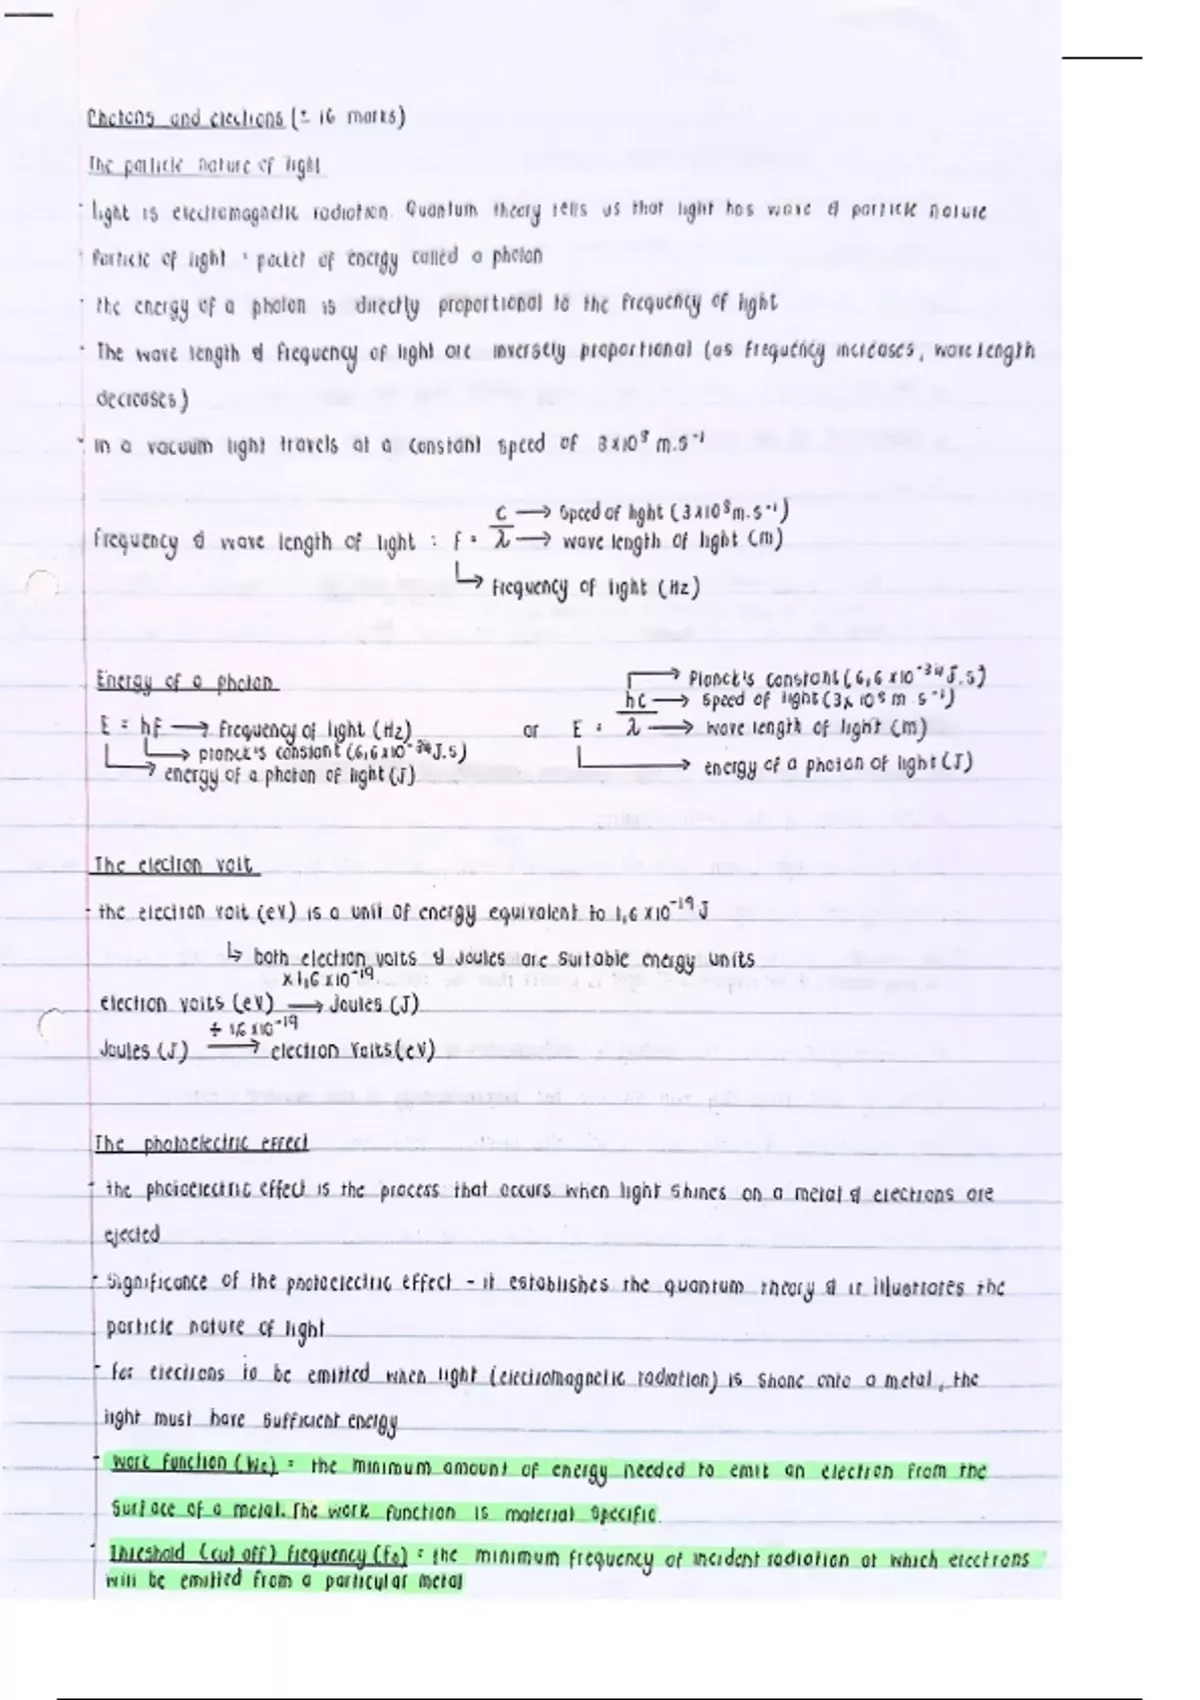 Photons and electrons (± 16 marks)
The particle nature of light
- light is electromagnetic radiation. Quantum theory tells us that light has wave & particle nature
- Particle of light : packet of energy called a photon
- the energy of a photon is directly proportional to the frequency of light
- The wave length & frequency of light are inversely proportional (as frequency increases, wave length
decreases)
- in a vacuum light travels at a constant speed of 3x10⁸ m.s⁻¹
c → Speed of light (3x10⁸m.s⁻¹)
frequency & wave length of light : f = λ → wave length of light (m)
↳ frequency of light (Hz)
Energy of a photon
→ Planck's constant (6,6 x10⁻³⁴J.s)
hc → speed of light (3x 10⁸ m.s⁻¹)
E = hf → frequency of light (Hz) or E = λ → wave length of light (m)
→ planck's constant (6,6x10⁻³⁴J.s)
→ energy of a photon of light (J) → energy of a photon of light (J)
The electron volt
- the electron volt (eV) is a unit of energy equivalent to 1,6 x10⁻¹⁹J
↳ both electron volts & Joules are suitable energy units
x1,6 x10⁻¹⁹
electron volts (eV) → Joules (J)
÷ 1,6 x10⁻¹⁹
Joules (J) → electron Volts(eV)
The photoelectric effect
- the photoelectric effect is the process that occurs when light shines on a metal & electrons are
ejected
- Significance of the photoelectric effect - it establishes the quantum theory & it illustrates the
particle nature of light
- for electrons to be emitted when light (electromagnetic radiation) is shone onto a metal, the
light must have sufficient energy
- Work function (W₀) = the minimum amount of energy needed to emit an electron from the
surface of a metal. The work function is material specific.
- Threshold (cut off) frequency (f₀) = the minimum frequency of incident radiation at which electrons
will be emitted from a particular metal